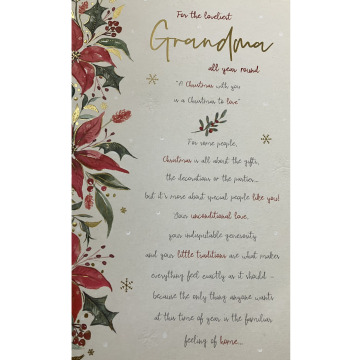 For the loveliest
Grandma
all year round
"A Christmas with you
is a Christmas to love"
For some people,
Christmas is all about the gifts,
the decorations or the parties...
but it's more about special people like you!
Your unconditional love,
your indisputable generosity
and your little traditions are what makes
everything feel exactly as it should -
because the only thing anyone wants
at this time of year is the familiar
feeling of home...